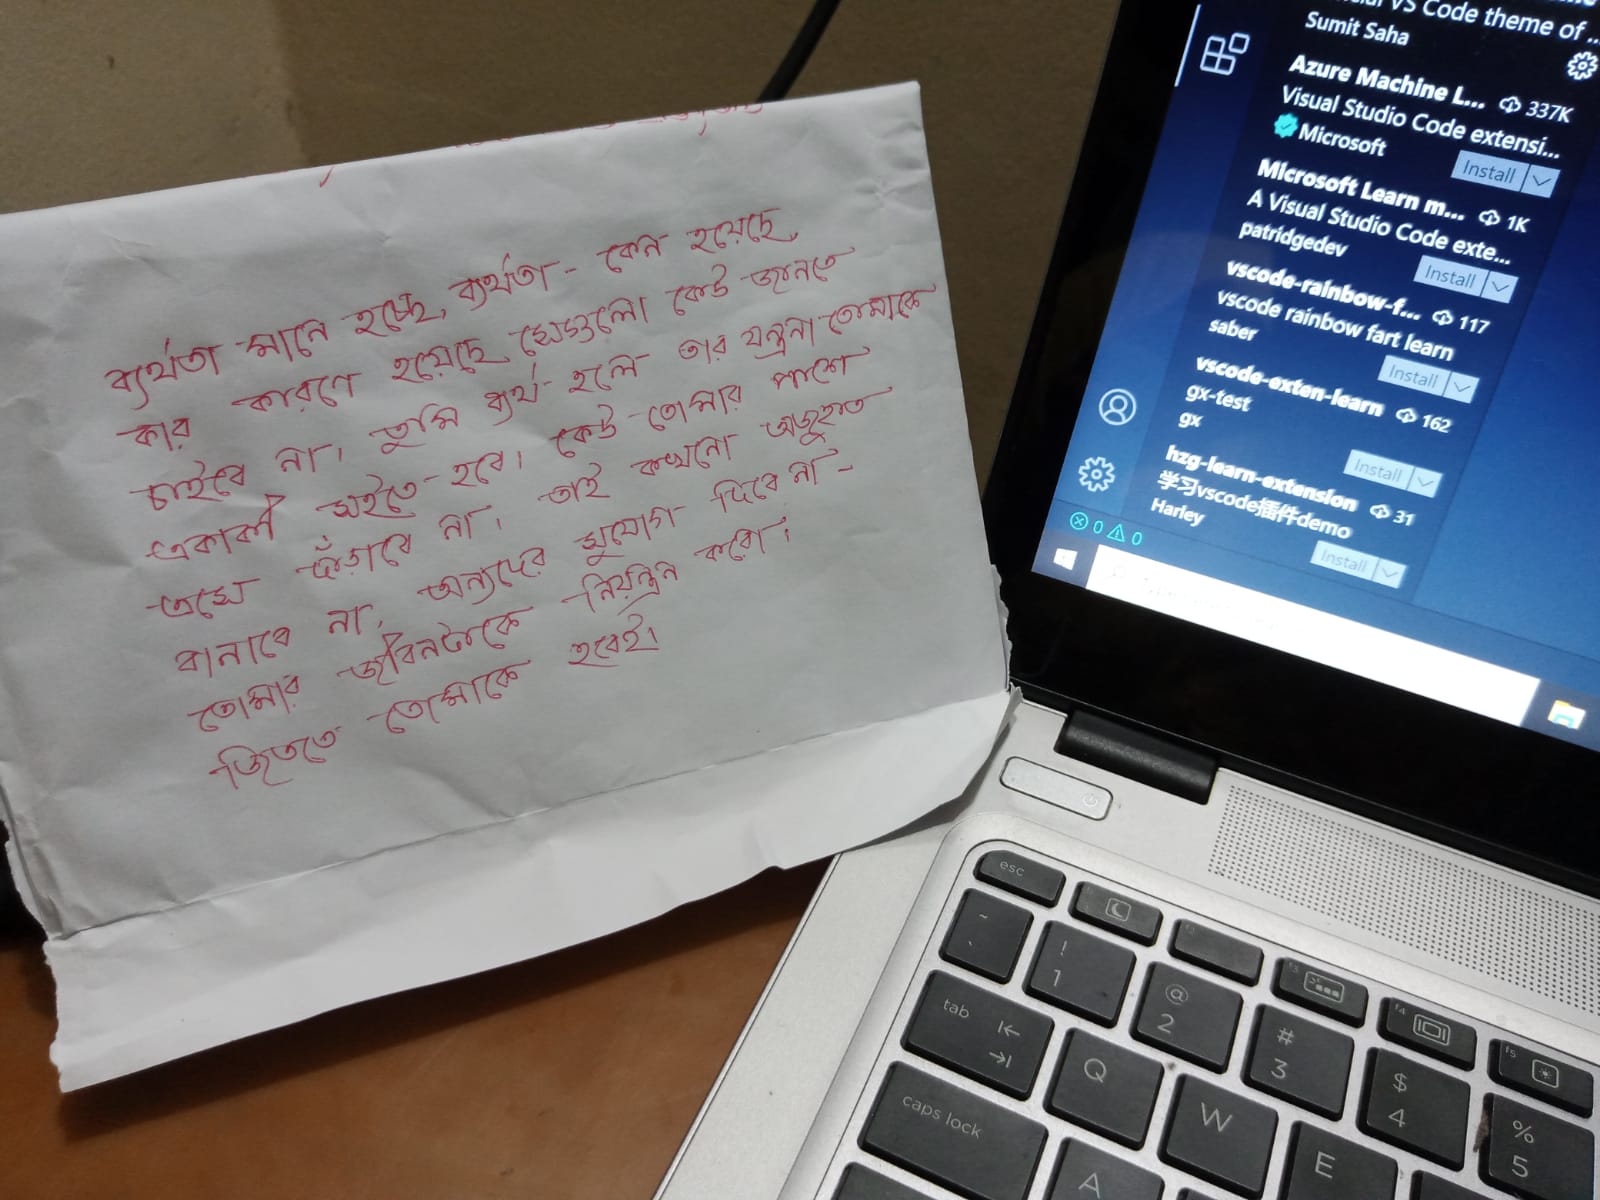 ব্যর্থতা মানে হচ্ছে, ব্যর্থতা - কেন হয়েছে,
কার কারণে হয়েছে সেগুলো কেউ জানতে
চাইবে না, তুমি ব্যর্থ হলে তার যন্ত্রনা তোমাকে
একাকী সইতে হবে। কেউ তোমার পাশে
এসে দাঁড়াবে না। তাই কখনো অজুহাত
বানাবে না, অন্যদের সুযোগ দিবে না -
তোমার জীবনটাকে নিয়ন্ত্রন করো।
জিততে তোমাকে হবেই।
VS Code theme of ...
Sumit Saha
Azure Machine L... 337K
Visual Studio Code extensi...
Microsoft
Install
Microsoft Learn m... 1K
A Visual Studio Code exte...
patridgedev
Install
vscode-rainbow-f... 117
vscode rainbow fart learn
saber
Install
vscode-exten-learn 162
gx-test
gx
Install
hzg-learn-extension 31
学习vscode插件demo
Harley
Install
0 0
esc
~ `
! 1
@ 2
# 3
$ 4
% 5
tab
Q
W
E
caps lock
A